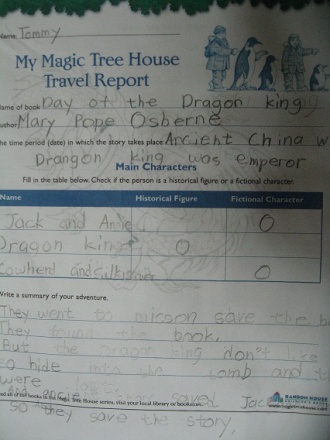 Name: Tommy
My Magic Tree House
Travel Report
Name of book Day of the Dragon king
Author Mary Pope Osberne
The time period (date) in which the story takes place Ancient China w
Drangon king was emperor
Main Characters
Fill in the table below. Check if the person is a historical figure or a fictional character.
Name Historical Figure Fictional Character
Jack and Annie O
Dragon king O
Cowherd and silk O
Write a summary of your adventure.
They went to save the b
They found the book.
But the king don't like
go hide into the tomb and t
were
Read all of the books in the Magic Tree House series, visit your local library or bookstore.
saved Jack
so they save the story.
RANDOM HOUSE